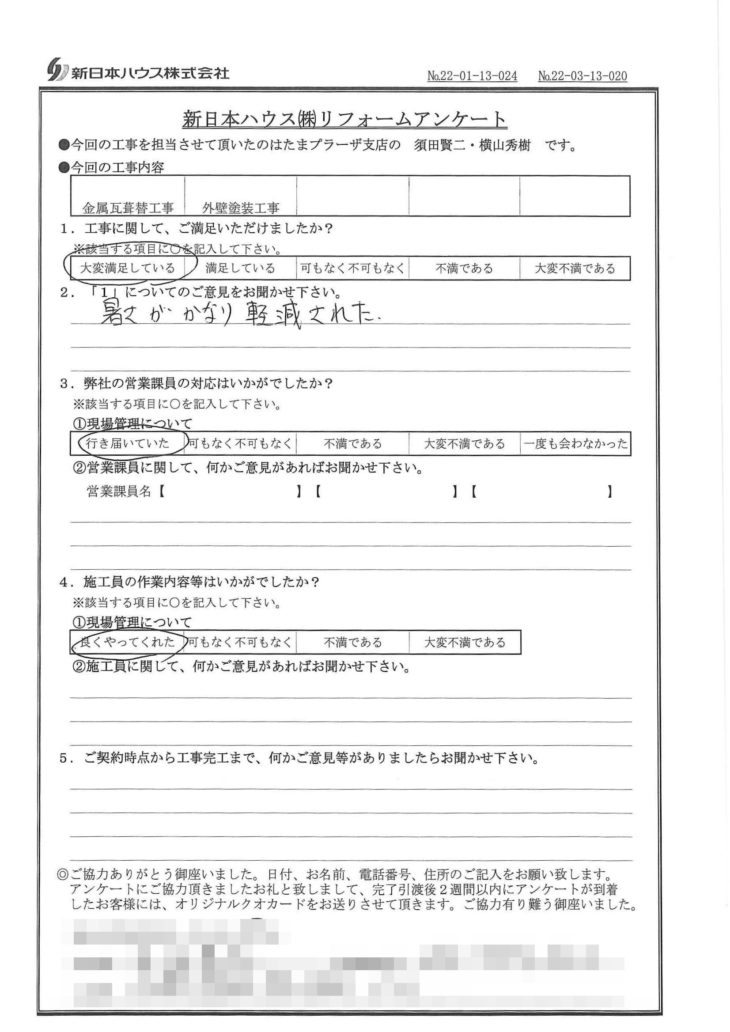 新日本ハウス株式会社
№22-01-13-024 №22-03-13-020
新日本ハウス㈱リフォームアンケート
●今回の工事を担当させて頂いたのはたまプラーザ支店の 須田賢二・横山秀樹 です。
●今回の工事内容
金属瓦葺替工事 外壁塗装工事
1．工事に関して、ご満足いただけましたか？
※該当する項目に○を記入して下さい。
大変満足している 満足している 可もなく不可もなく 不満である 大変不満である
2．「1」についてのご意見をお聞かせ下さい。
暑さがかなり軽減された.
3．弊社の営業課員の対応はいかがでしたか？
※該当する項目に○を記入して下さい。
①現場管理について
行き届いていた 可もなく不可もなく 不満である 大変不満である 一度も会わなかった
②営業課員に関して、何かご意見があればお聞かせ下さい。
営業課員名【 】【 】【 】
4．施工員の作業内容等はいかがでしたか？
※該当する項目に○を記入して下さい。
①現場管理について
良くやってくれた 可もなく不可もなく 不満である 大変不満である
②施工員に関して、何かご意見があればお聞かせ下さい。
5．ご契約時点から工事完工まで、何かご意見等がありましたらお聞かせ下さい。
◎ご協力ありがとう御座いました。日付、お名前、電話番号、住所のご記入をお願い致します。
アンケートにご協力頂きましたお礼と致しまして、完了引渡後２週間以内にアンケートが到着
したお客様には、オリジナルクオカードをお送りさせて頂きます。ご協力有り難う御座いました。